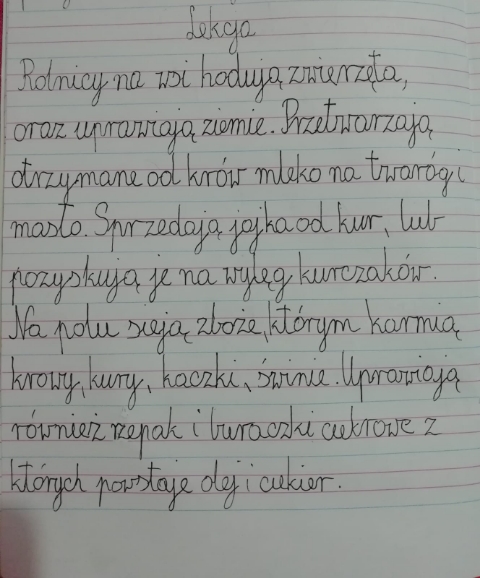 Lekcja
Rolnicy na wsi hodują zwierzęta,
oraz uprawiają ziemie. Przetwarzają
otrzymane od krów mleko na twaróg i
masło. Sprzedają jajka od kur, lub
pozyskują je na wyląg kurczaków.
Na polu sieją zboże, którym karmią
krowy, kury, kaczki, świnie. Uprawiają
również rzepak i buraczki cukrowe z
których powstaje olej i cukier.